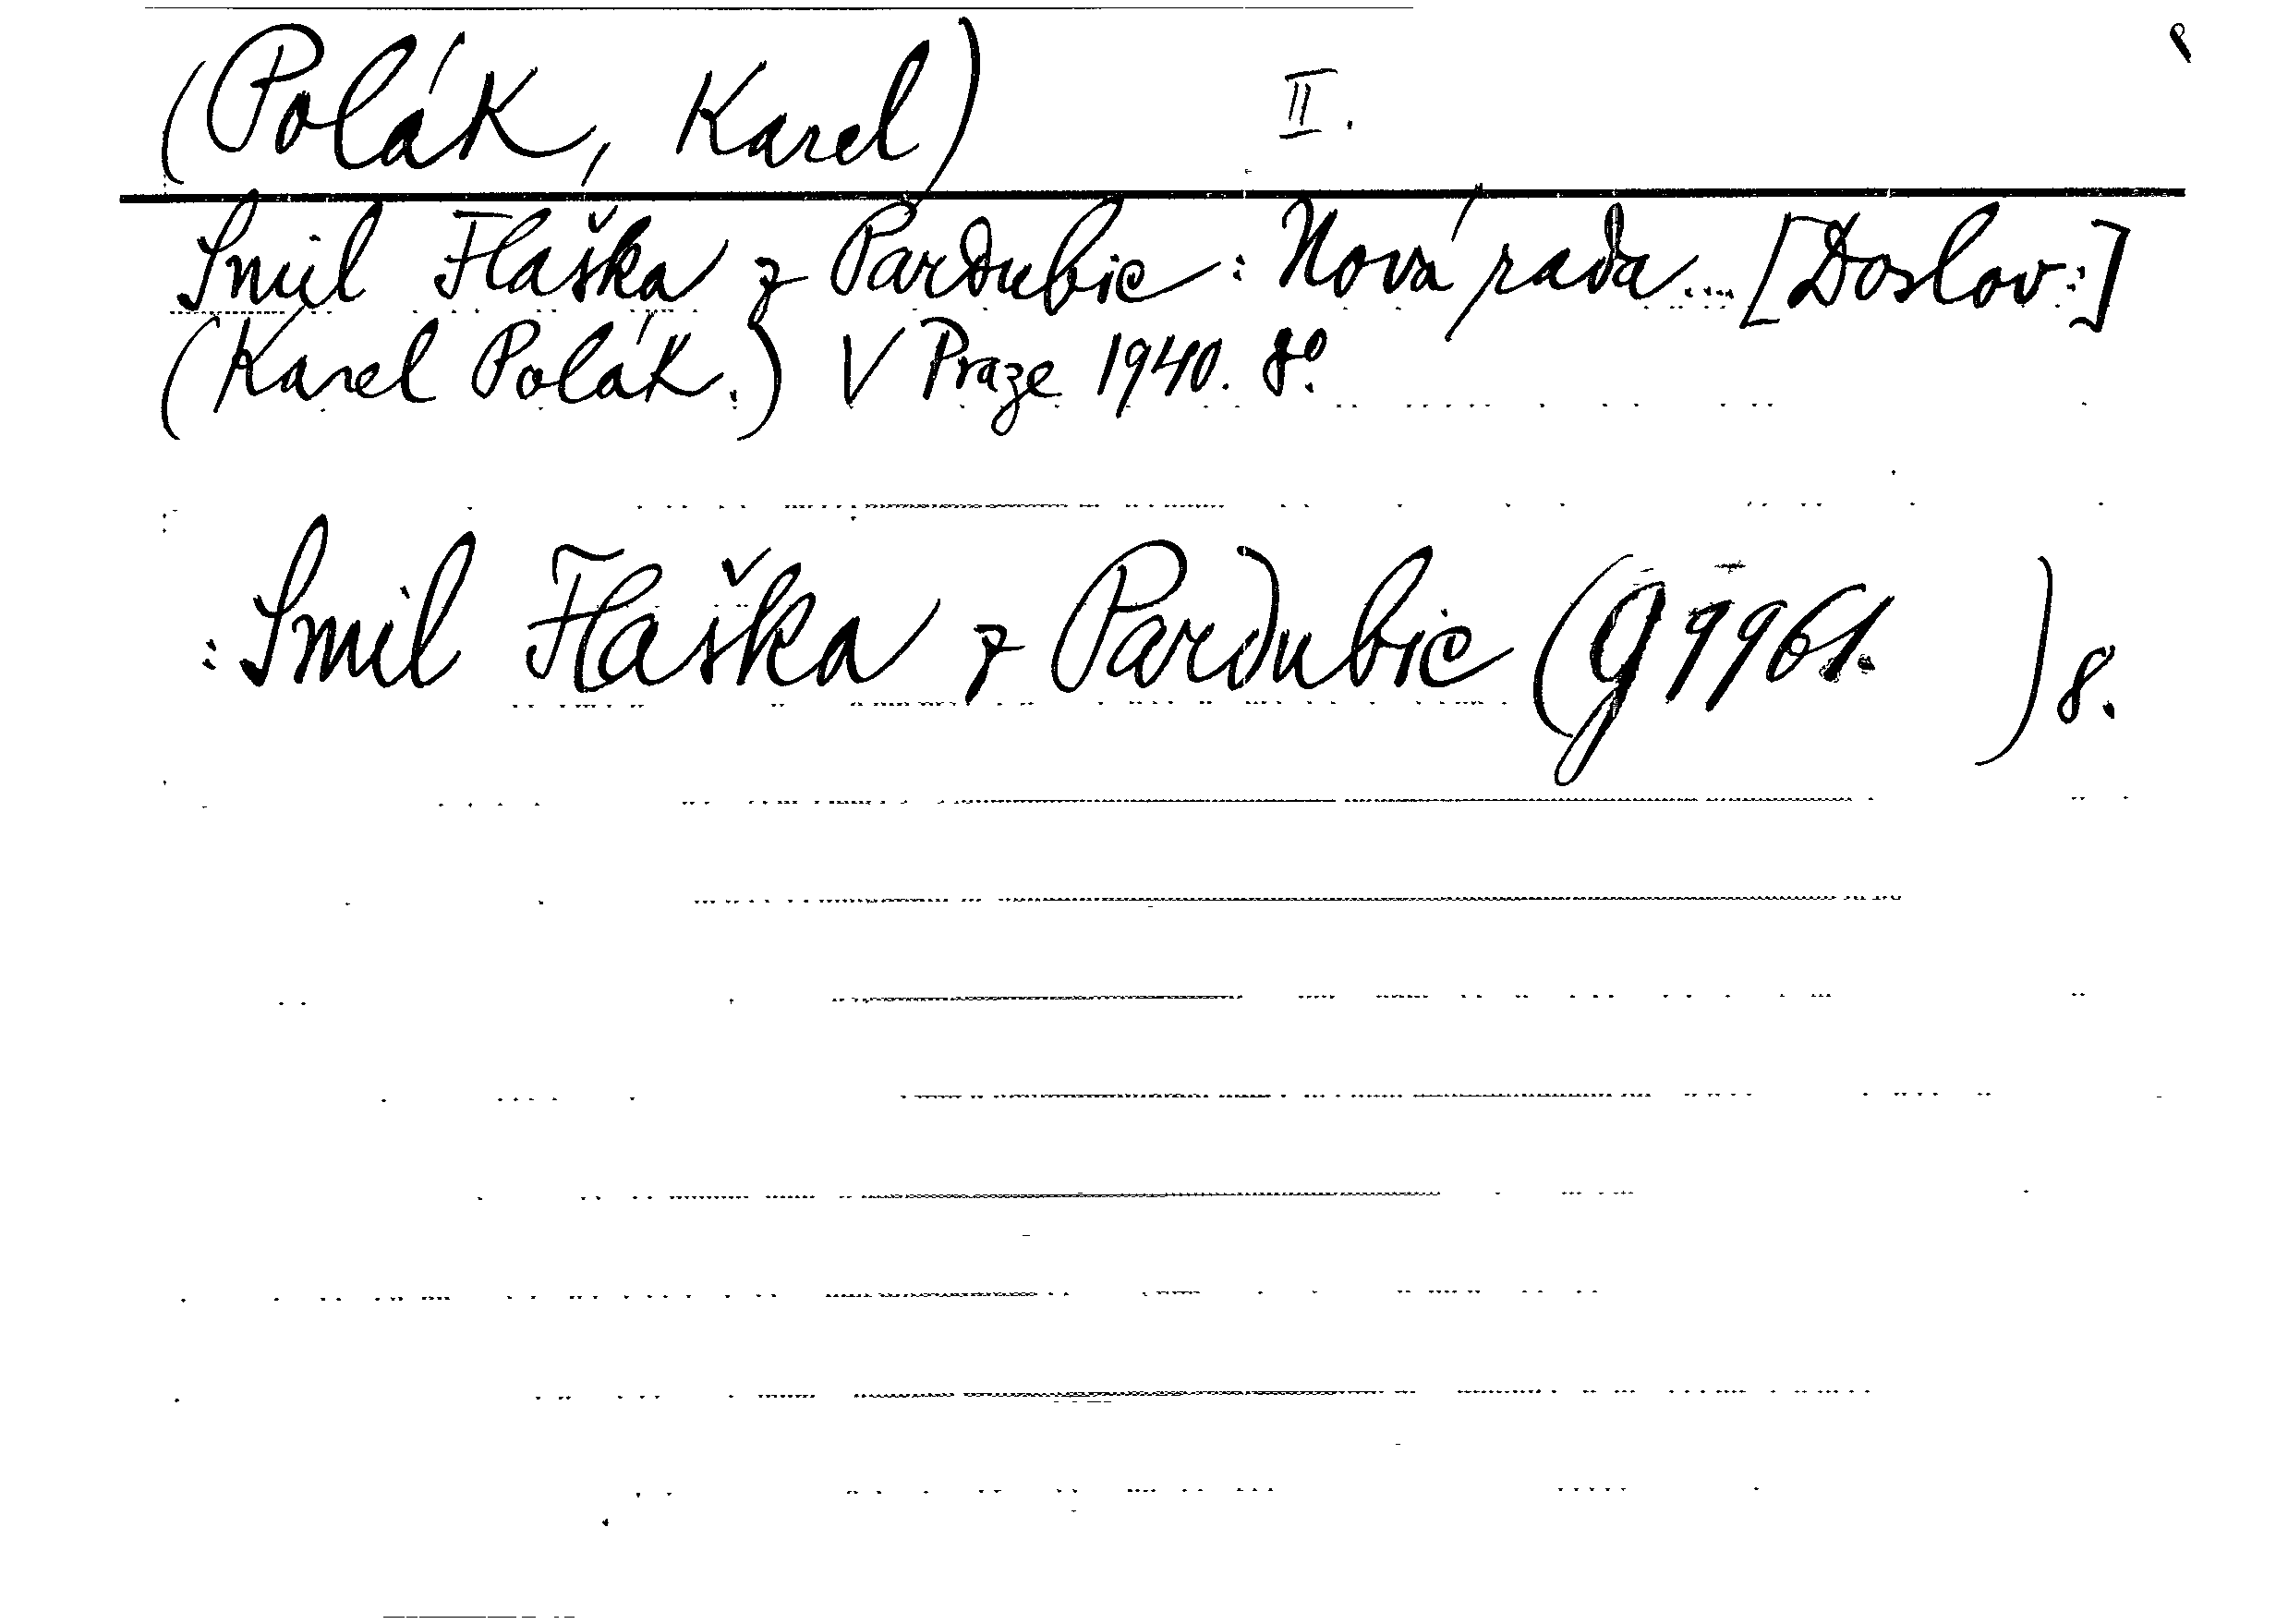 (Polák, Karel) II.
Smil Flaška z Pardubic: Nová rada... [Doslov:]
(Karel Polák.) V Praze 1940. 8°.
: Smil Flaška z Pardubic (G 9961. ) 8.